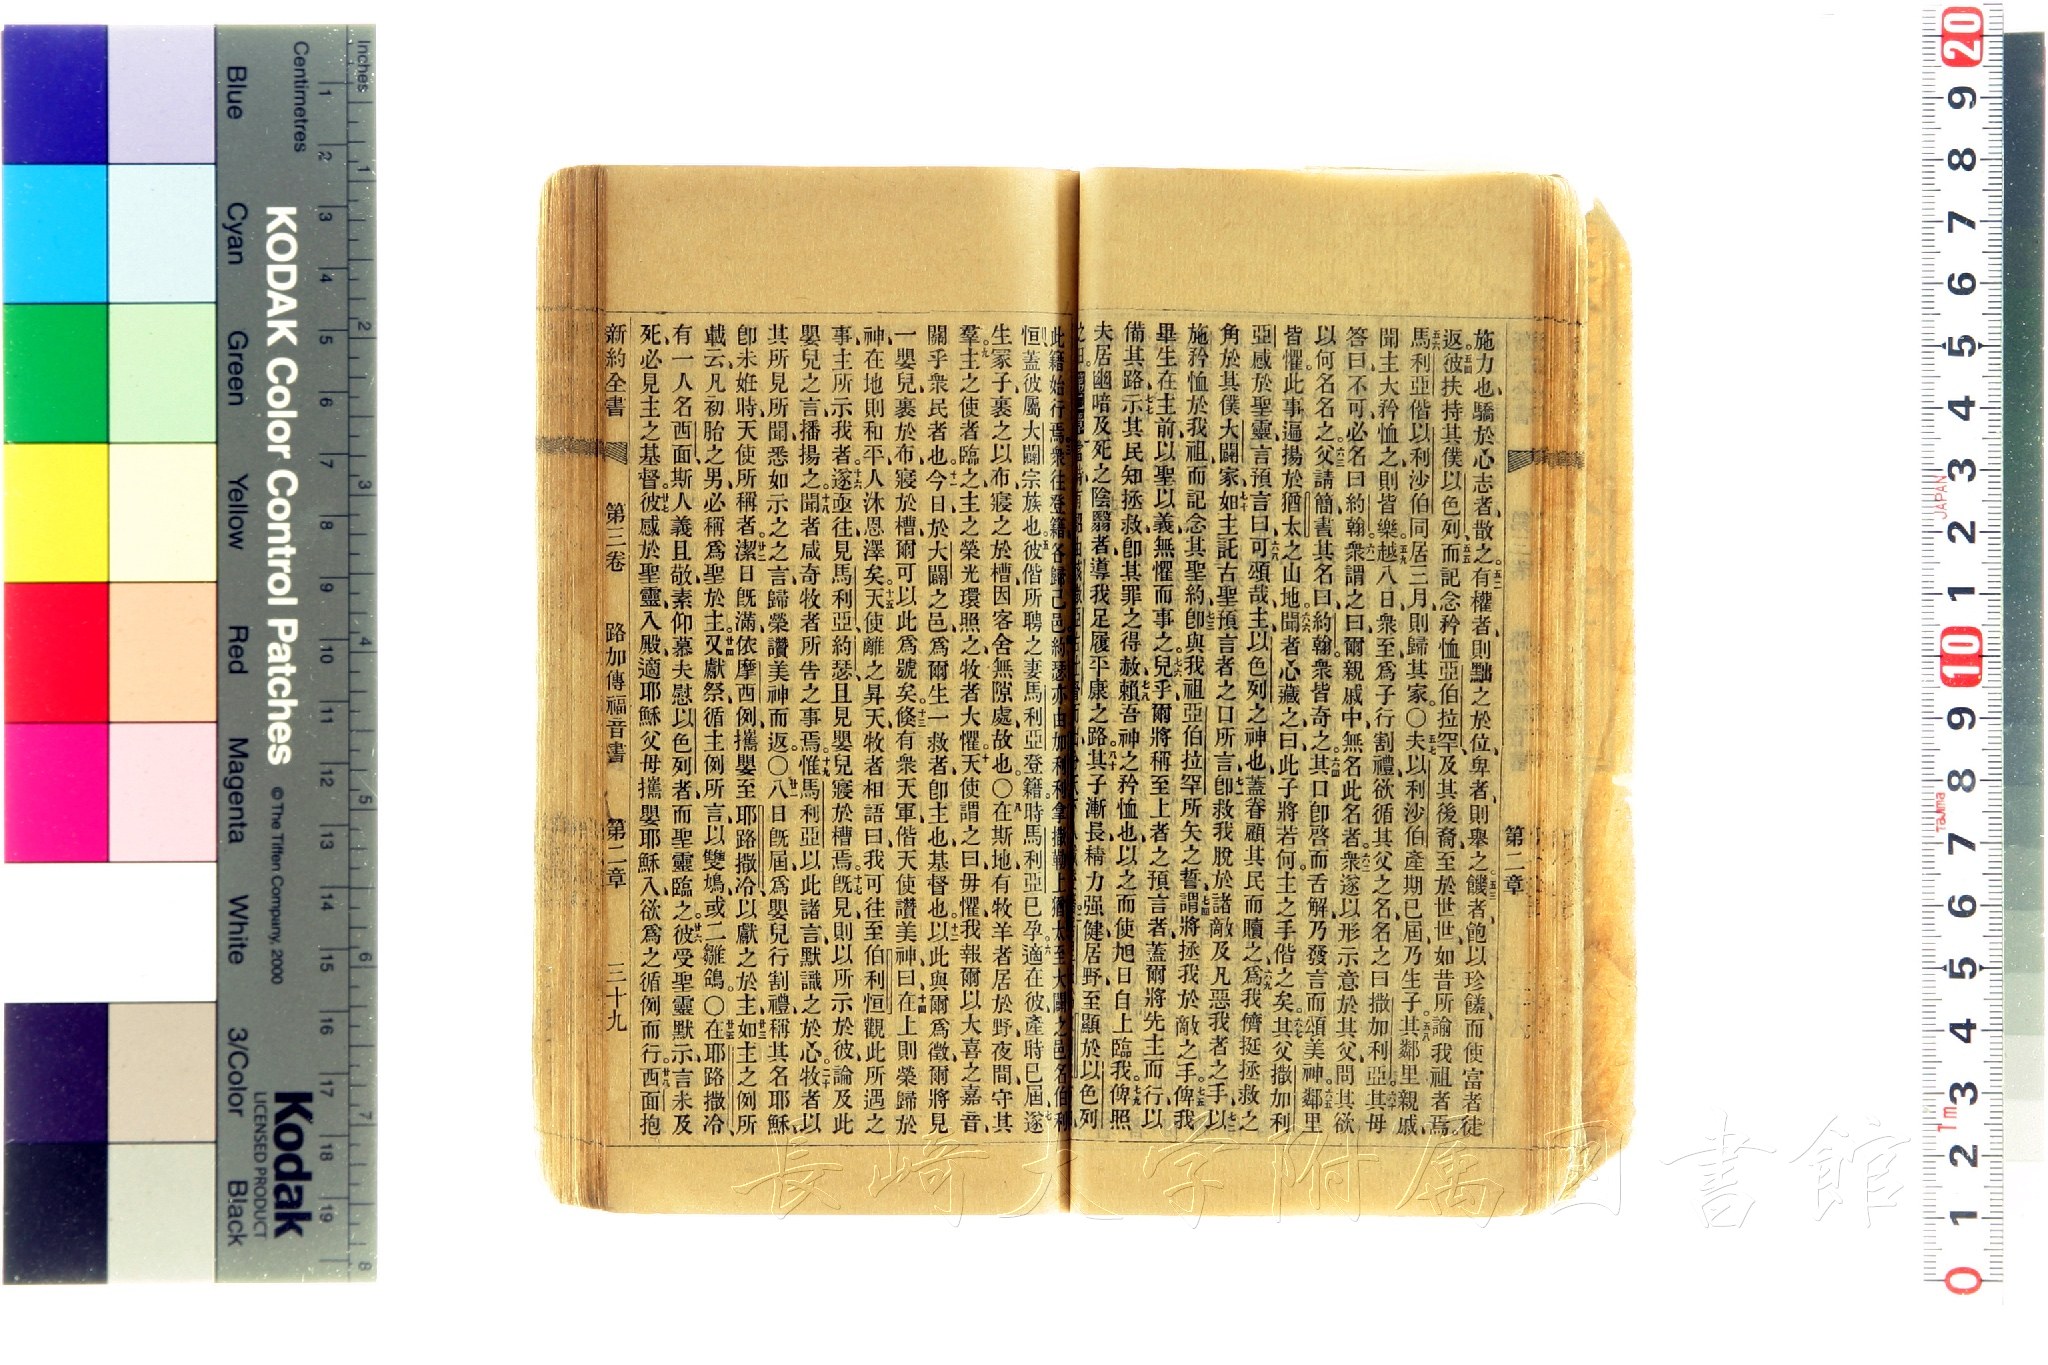 施力也驕於心志者散之有權者則黜之於位卑者則舉之饑者飽以珍饈而使富者徒
返彼扶持其僕以色列而記念矜恤亞伯拉罕及其後裔至於世世如昔所諭我祖者焉
馬利亞偕以利沙伯同居三月則歸其家〇夫以利沙伯產期已屆乃生子其鄰里親戚
聞主大矜恤之則皆樂越八日衆至爲子行割禮欲循其父之名名之曰撒加利亞其母
答曰不可必名曰約翰衆謂之曰爾親戚中無名此名者衆遂以形示意於其父問其欲
以何名名之父請簡書其名曰約翰衆皆奇之其口卽啓而舌解乃發言而頌美神鄰里
皆懼此事遍揚於猶太之山地聞者心藏之曰此子將若何主之手偕之矣其父撒加利
亞感於聖靈言預言曰可頌哉主以色列之神也蓋眷顧其民而贖之爲我儕挺拯救之
角於其僕大闢家如主託古聖預言者之口所言卽救我脫於諸敵及凡惡我者之手以
施矜恤於我祖而記念其聖約卽與我祖亞伯拉罕所矢之誓謂將拯我於敵之手俾我
畢生在主前以聖以義無懼而事之兒乎爾將稱至上者之預言者蓋爾將先主而行以
備其路示其民知拯救卽其罪之得赦賴吾神之矜恤也以之而使旭日自上臨我俾照
夫居幽暗及死之陰翳者導我足履平康之路其子漸長精力强健居野至顯於以色列
第二章
此籍始行焉衆往登籍各歸己邑約瑟亦由加利利拿撒勒上猶太至大闢之邑名伯利
恒蓋彼屬大闢宗族也彼偕所聘之妻馬利亞登籍時馬利亞已孕適在彼產時已屆遂
生冢子裹之以布寢之於槽因客舍無隙處故也〇在斯地有牧羊者居於野夜間守其
羣主之使者臨之主之榮光環照之牧者大懼天使謂之曰毋懼我報爾以大喜之嘉音
關乎衆民者也今日於大闢之邑爲爾生一救者卽主也基督也以此與爾爲徵爾將見
一嬰兒裹於布寢於槽爾可以此爲號矣倏有衆天軍偕天使讚美神曰在上則榮歸於
神在地則和平人沐恩澤矣天使離之昇天牧者相語曰我可往至伯利恒觀此所遇之
事主所示我者遂亟往見馬利亞約瑟且見嬰兒寢於槽焉旣見則以所示於彼論及此
嬰兒之言播揚之聞者咸奇牧者所告之事焉惟馬利亞以此諸言默識之於心牧者以
其所見所聞悉如示之之言歸榮讚美神而返〇八日旣屆爲嬰兒行割禮稱其名耶穌
卽未姙時天使所稱者潔日旣滿依摩西例攜嬰至耶路撒冷以獻之於主如主之例所
載云凡初胎之男必稱爲聖於主又獻祭循主例所言以雙鳩或二雛鴿〇在耶路撒冷
有一人名西面斯人義且敬素仰慕夫慰以色列者而聖靈臨之彼受聖靈默示言未及
死必見主之基督彼感於聖靈入殿適耶穌父母攜嬰耶穌入欲爲之循例而行西面抱
新約全書 第三卷 路加傳福音書 第二章 三十九
長崎大学附属図書館
KODAK Color Control Patches © The Tiffen Company, 2000
Kodak
LICENSED PRODUCT
Inches
Centimetres
Blue Cyan Green Yellow Red Magenta White 3/Color Black
JAPAN
Tajima